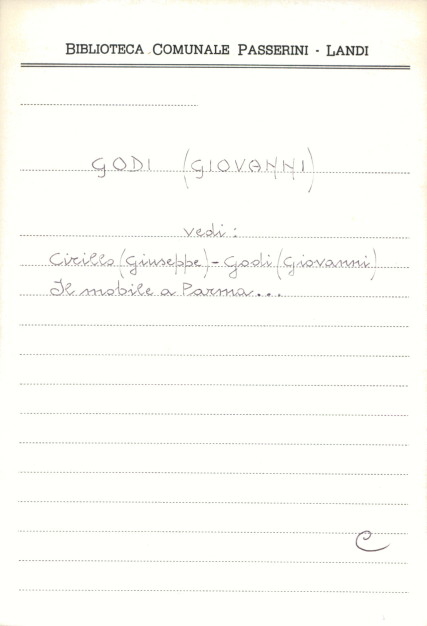 BIBLIOTECA COMUNALE PASSERINI - LANDI
GODI (GIOVANNI)
vedi:
Cirillo (Giuseppe) - Godi (Giovanni)
Il mobile a Parma...
C